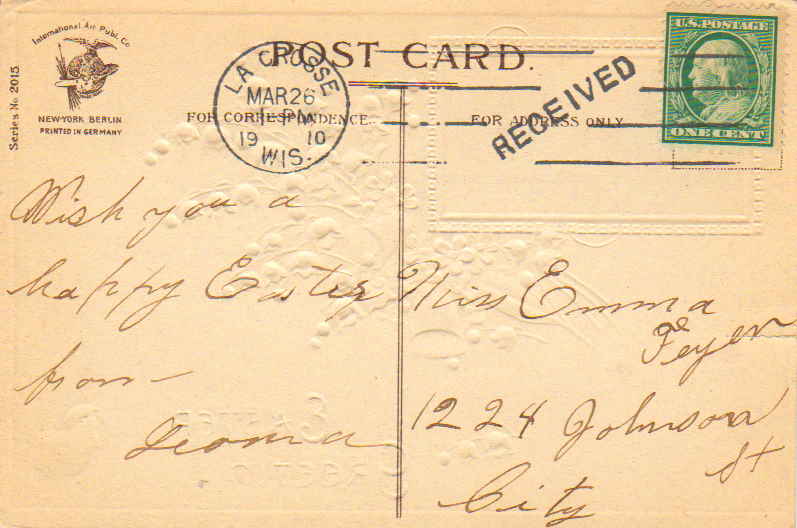 International Art Publ. Co.
Series No 2015
NEW-YORK BERLIN
PRINTED IN GERMANY
POST CARD.
LA CROSSE
MAR 26
PM
19 10
WIS.
RECEIVED
U.S. POSTAGE
ONE CENT
FOR CORRESPONDENCE.
FOR ADDRESS ONLY
Wish you a
happy Easter
from-
Leona
Miss Emma
Feyen
1224 Johnson
St
City